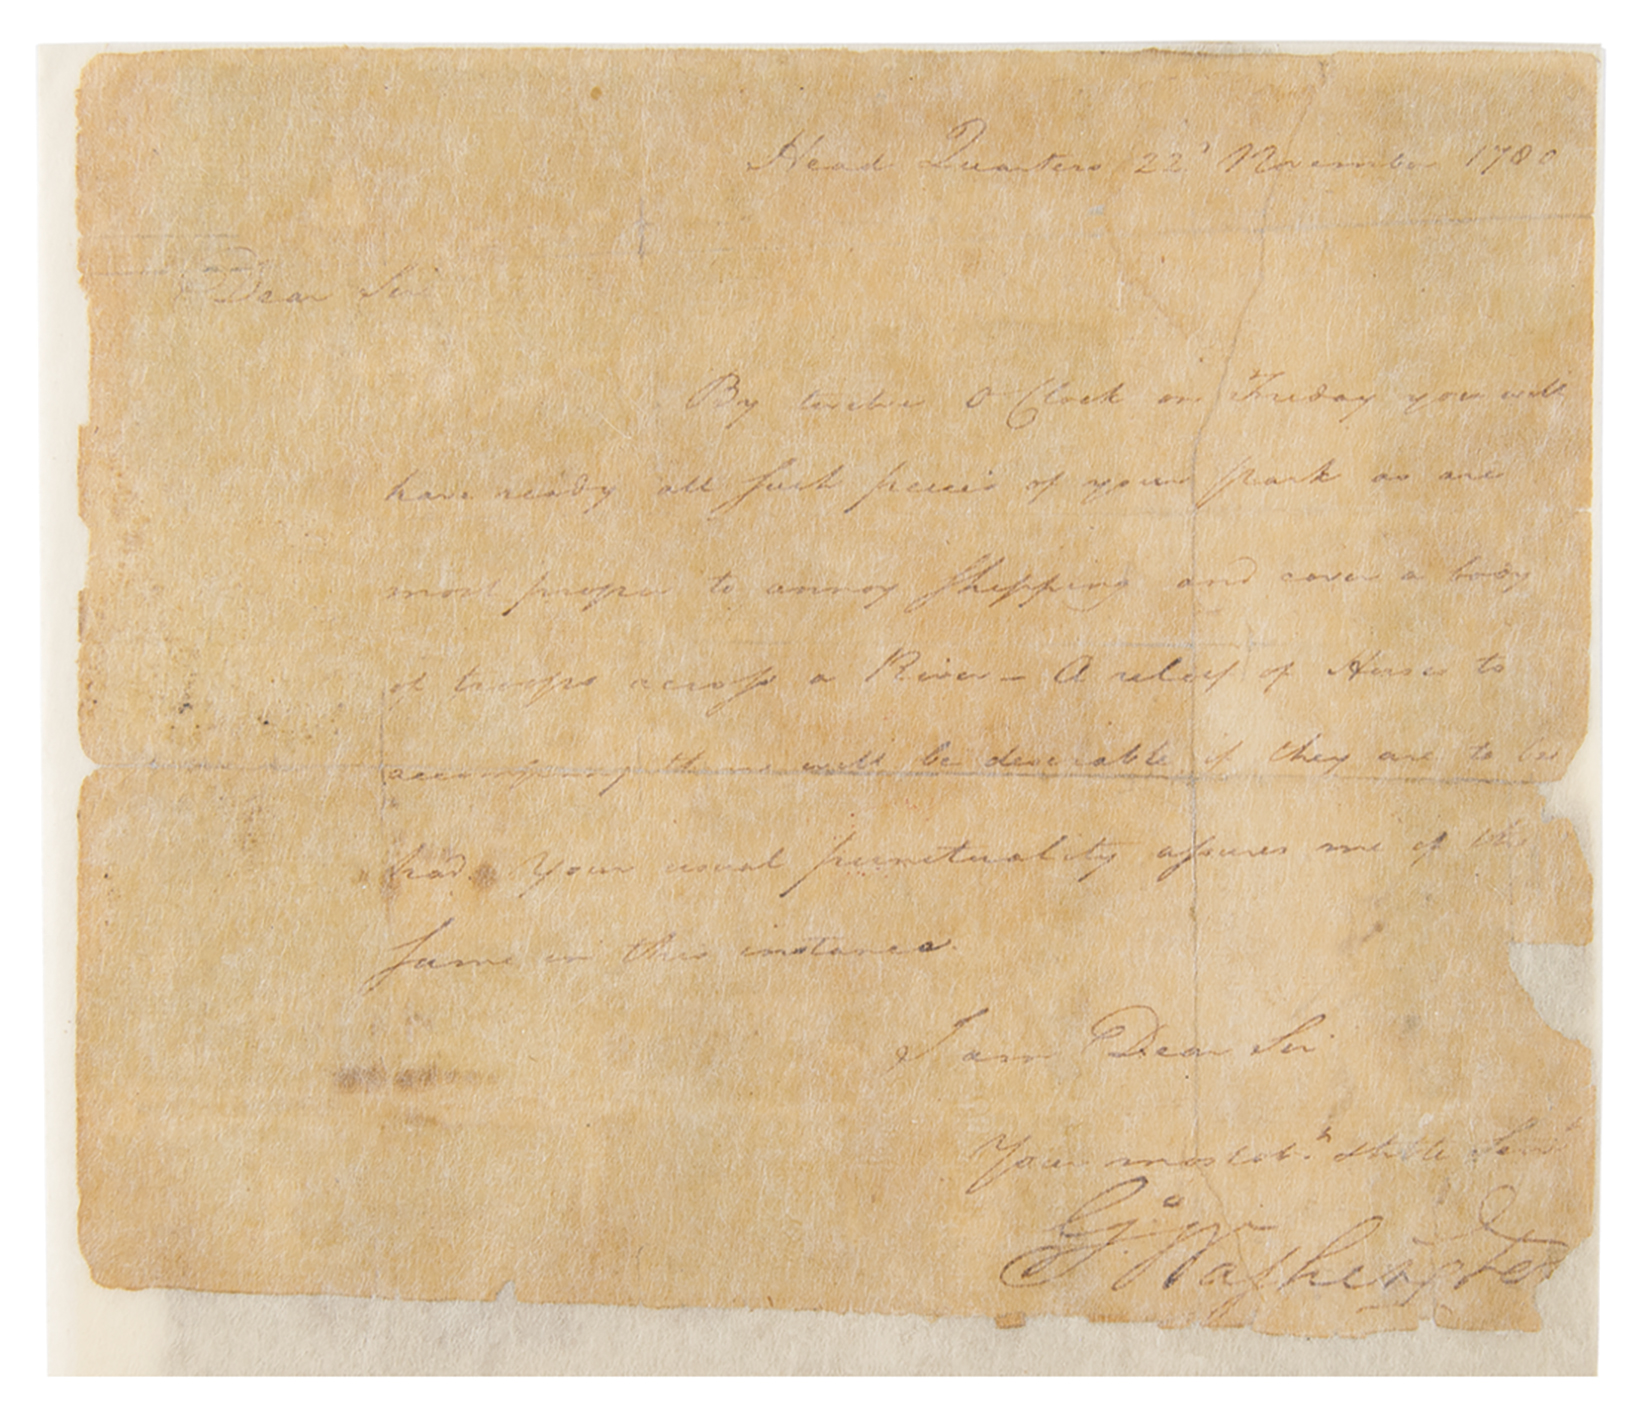 Head Quarters 22d November 1780
Dear Sir
By twelve O Clock on Friday you will
have ready all such pieces of your Park as are
most proper to annoy Shipping and cover a body
of troops across a River – A relief of Horses to
accompany them will be desirable if they are to be
had. Your usual punctuality assures me of the
same in this instance.
I am Dear Sir
Your most obt. & hble Servt
Go: Washington